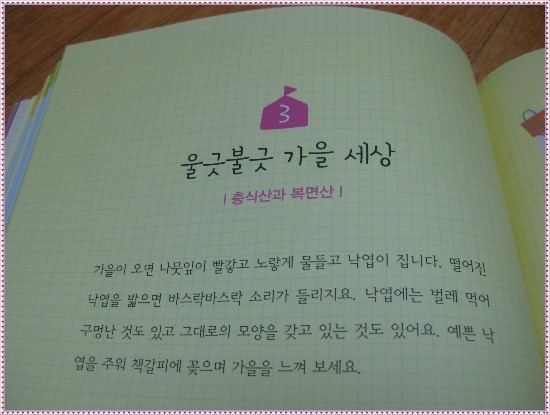 3
울긋불긋 가을 세상
| 충식산과 복면산 |
가을이 오면 나뭇잎이 빨갛고 노랗게 물들고 낙엽이 집니다. 떨어진
낙엽을 밟으면 바스락바스락 소리가 들리지요. 낙엽에는 벌레 먹어
구멍난 것도 있고 그대로의 모양을 갖고 있는 것도 있어요. 예쁜 낙
엽을 주워 책갈피에 꽂으며 가을을 느껴 보세요.